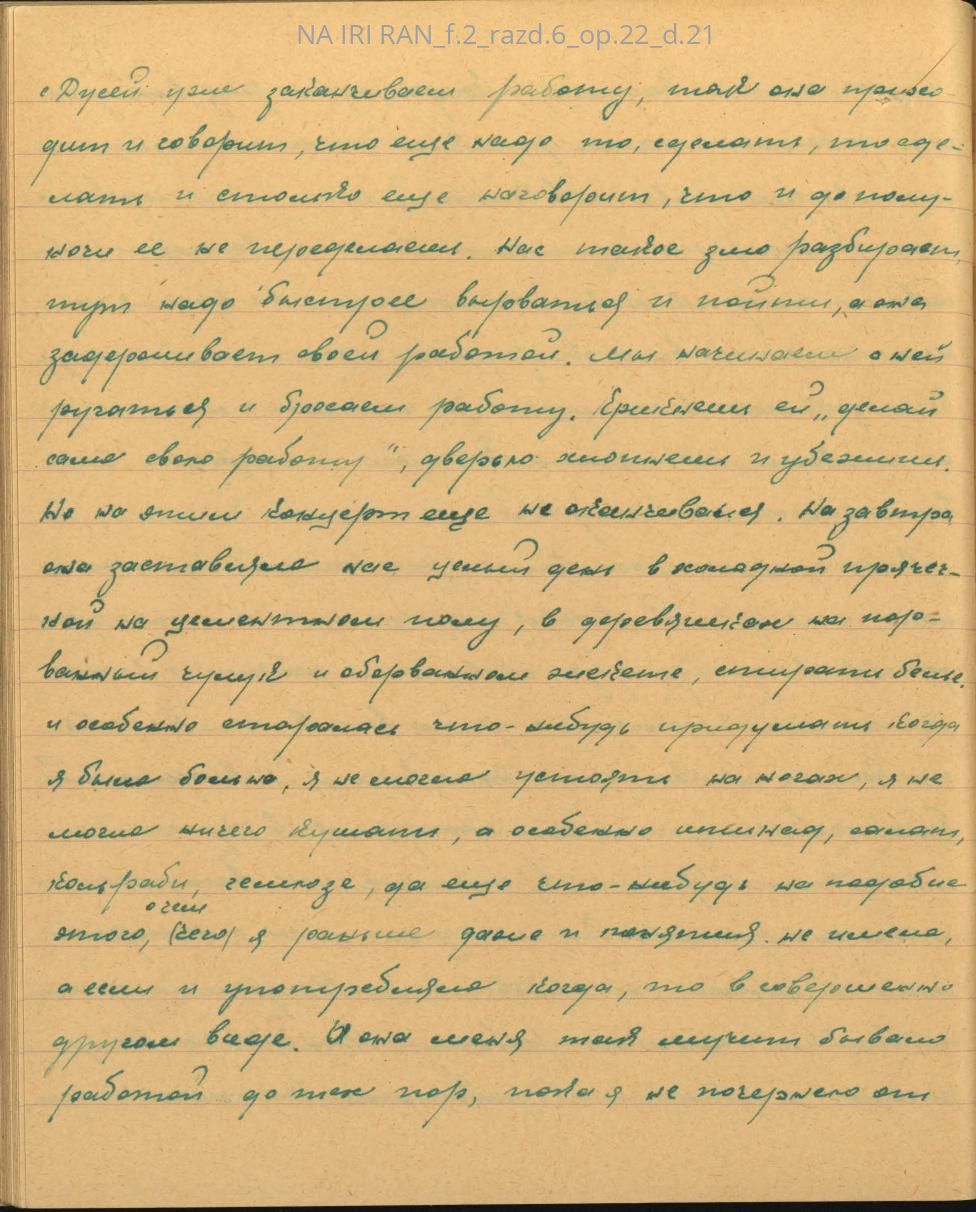 NA IRI RAN_f.2_razd.6_op.22_d.21
с Дусей уже заканчиваем работу, так она прихо-
дит и говорит, что еще надо то, сделать, то сде-
лать и столько еще наговорит, что и до полу-
ночи ее не переделаем. Нас такое зло разбирает,
тут надо быстрее вырваться и пойти, а она
задерживает своей работой. Мы начинаем с ней
ругаться и бросаем работу. Крикнешь ей „делай
сама свою работу", дверью хлопнешь и убежишь.
Но на этом концерт еще не оканчивался. На завтра
она заставляла нас целый день в холодной прачеч-
ной на цементном полу, в деревяшках на порo-
ванный чулук и оборванном жакете, стирать белье.
и особенно старалась что-нибудь придумать когда
я была больна, я не могла устоять на ногах, я не
могла ничего кушать, а особенно шпинад, салат,
кольраби, гемюзе, да еще что-нибудь на подобие
о чем
этого, (чего) я раньше даже и понятия не имела,
а если и употребляла когда, то в совершенно
другом виде. И она меня так мучит бывало
работой до тех пор, пока я не почернею от